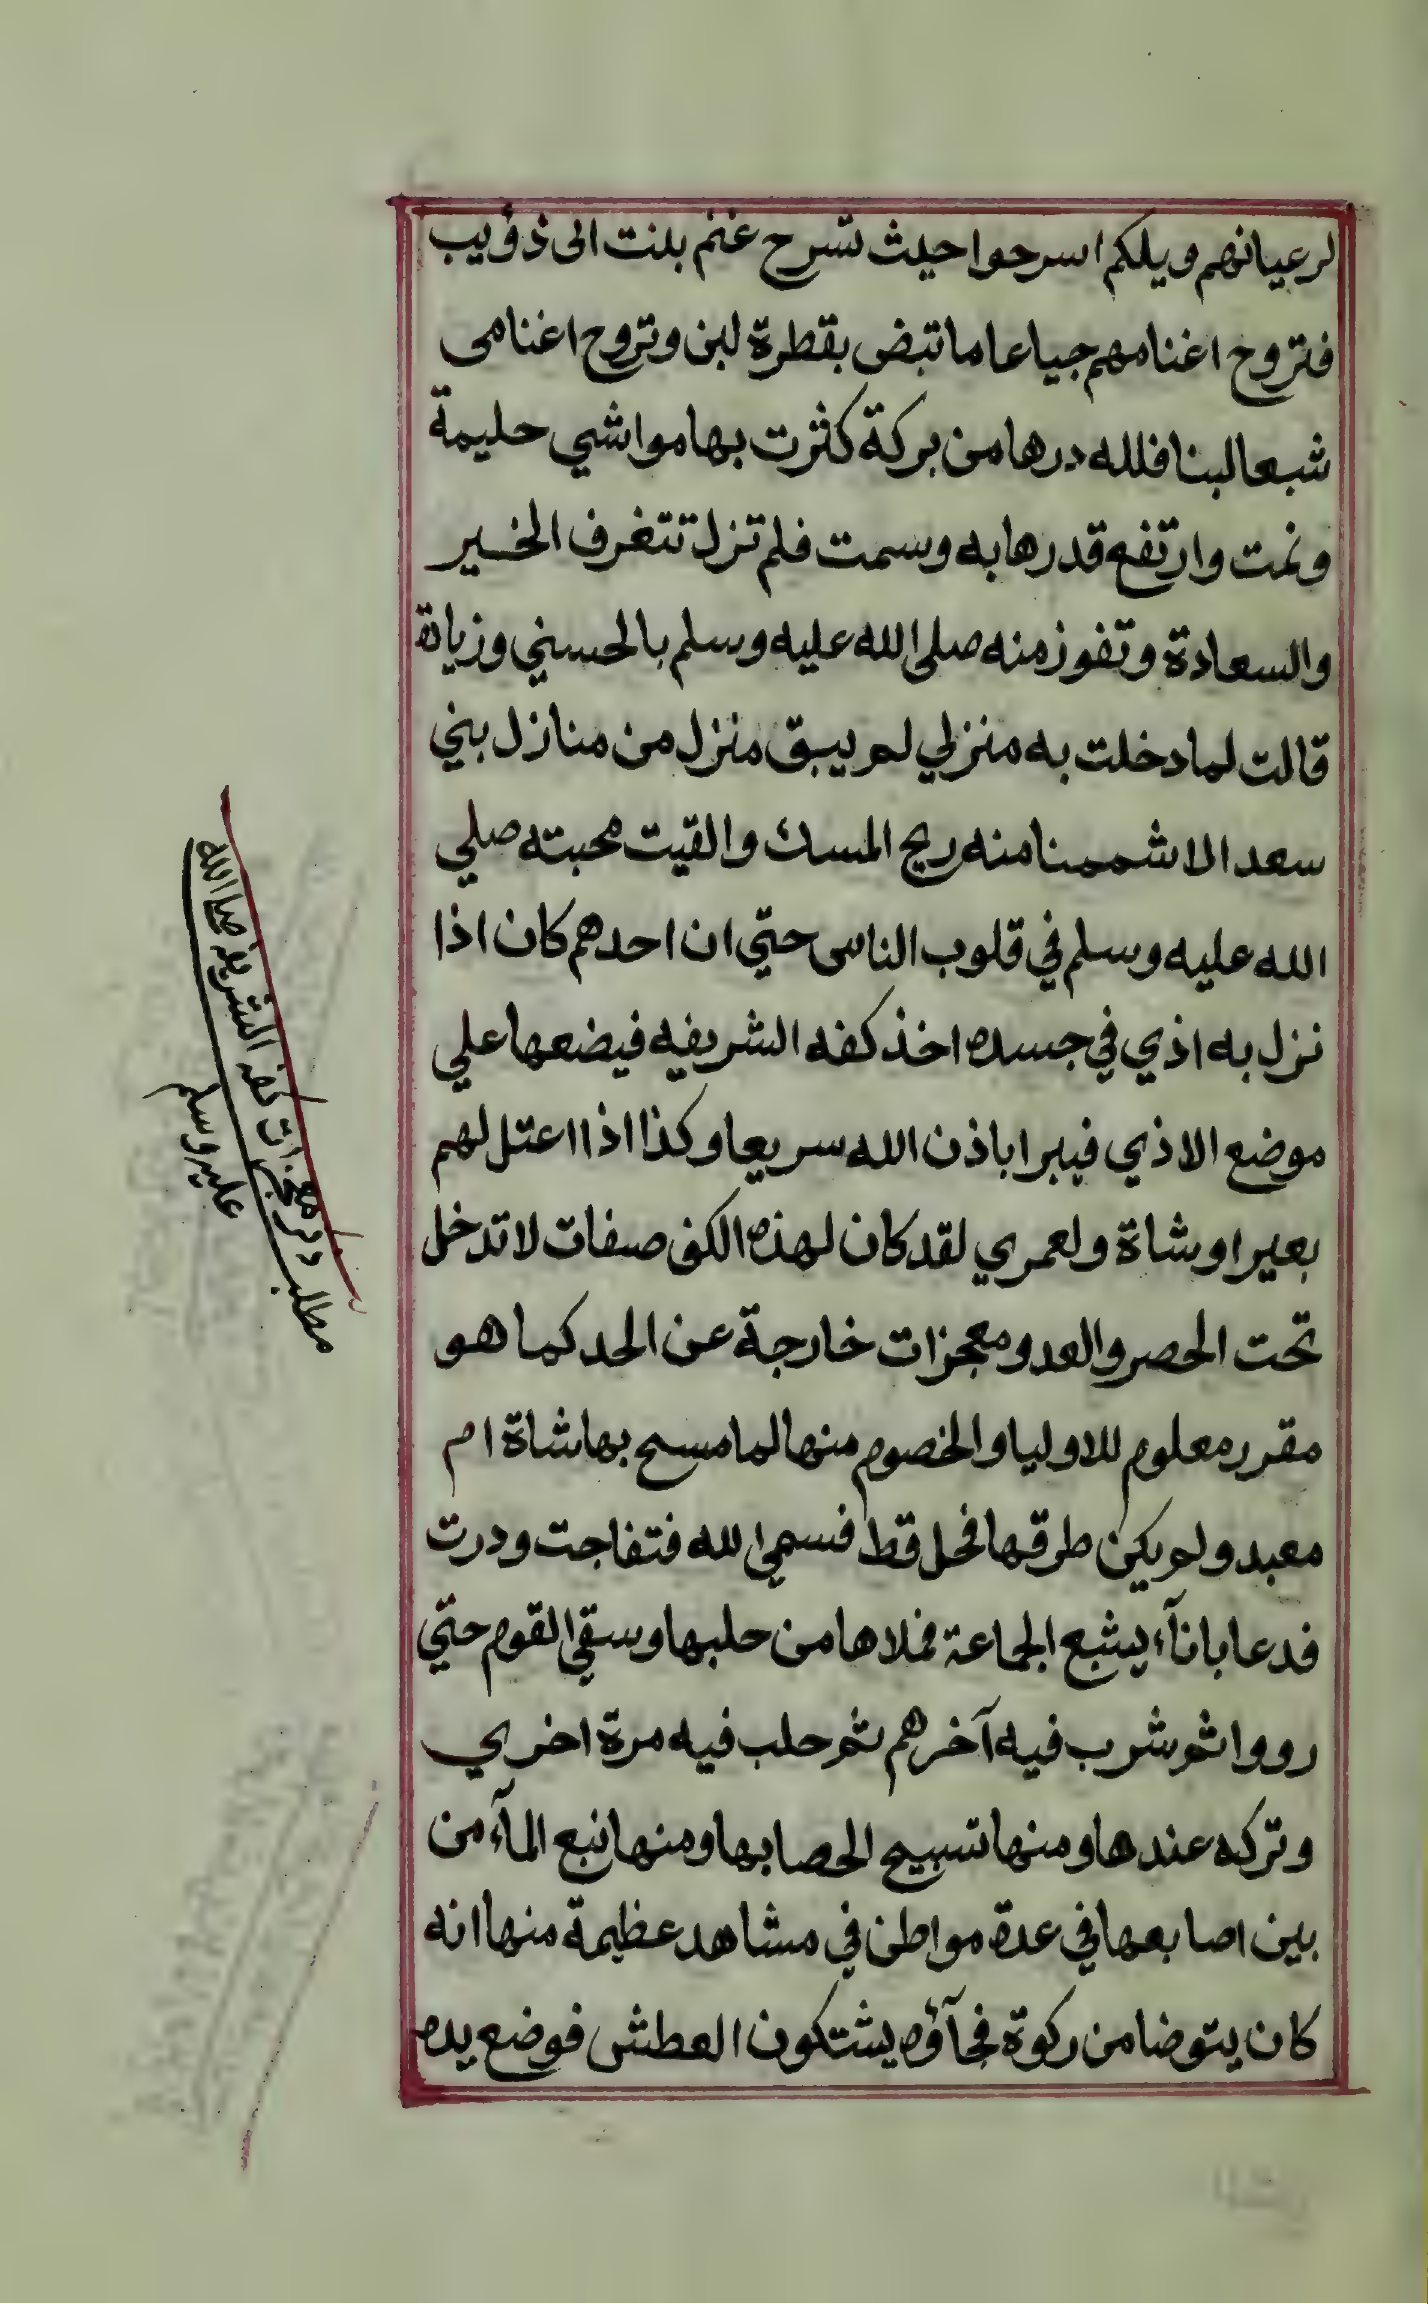 لرعيانهم ويلكم اسرحوا حيث تسرح غنم بنت الى ذؤيب
فتروح اغنامهم جياعا ما تبض بقطرة لبن وتروح اغنامى
شبعا لبنا فلله درها من بركة كثرت بها مواشي حليمة
ونمت وارتفع قدرها به وسمت فلم تزل تتغرف الخير
والسعادة وتفوز منه صلى الله عليه وسلم بالحسني وزيادة
قالت لما دخلت به منزلي لم يبق منزل من منازل بني
سعد الا شممنا منه ريح المسك والقيت محبته صلي
الله عليه وسلم في قلوب الناس حتي ان احدهم كان اذا
نزل به اذي في جسده اخذ كفه الشريفه فيضعها علي
موضع الاذي فيبرا باذن الله سريعا وكذا اذا اعتل لهم
بعير او شاة ولعمري لقد كان لهذه الكف صفات لا تدخل
تحت الحصر والعد ومعجزات خارجة عن الحد كما هو
مقرر معلوم للاوليا والخصوم منها لما مسح بها شاة ام
معبد ولم يكن طرقها فحل قط فسمي الله فتفاجت ودرت
فدعا باناء يشبع الجماعة فملاها من حلبها وسقي القوم حتي
رووا ثم شرب فيه آخرهم ثم حلب فيه مرة اخري
وتركه عندها ومنها تسبيح الحصا بها ومنها نبع المآء من
بين اصابعها في عدة مواطن في مشاهد عظيمة منها انه
كان يتوضا من ركوة فجآؤه يشتكون العطش فوضع يده
مطلب ذكر معجزات كفه الشريفة صلى الله
عليه وسلم